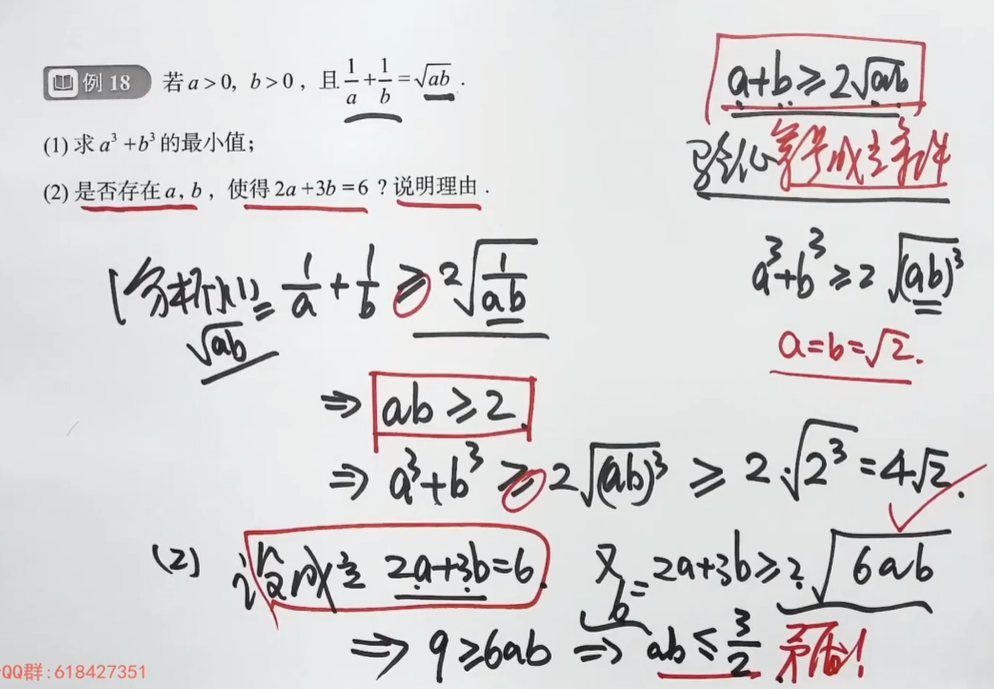 例 18 若 a > 0, b > 0, 且 1/a + 1/b = √ab .
(1) 求 a³ + b³ 的最小值;
(2) 是否存在 a, b, 使得 2a + 3b = 6 ? 说明理由 .
a+b ≥ 2√ab
等号成立条件
a³+b³ ≥ 2√(ab)³
a=b=√2.
[分析](1) √ab = 1/a + 1/b ≥ 2√(1/ab)
⇒ ab ≥ 2.
⇒ a³+b³ ≥ 2√(ab)³ ≥ 2·√2³ = 4√2.
(2) 设成立 2a+3b=6. 又 6=2a+3b ≥ 2√6ab
⇒ 9 ≥ 6ab ⇒ ab ≤ 3/2 矛盾!
QQ群: 618427351